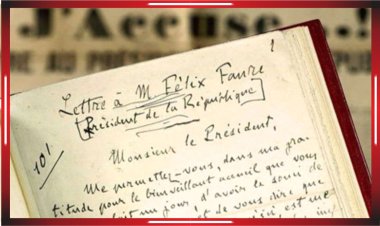 J'Accuse...!
RE AU PRÉ
1
Lettre à M. Félix Faure
[Président de la République]
10!
Monsieur le Président,
Me permettez-vous, dans ma gra-
titude pour le bienveillant accueil que vous
fait un jour, d'avoir le souci de
et de vous dire que
est me